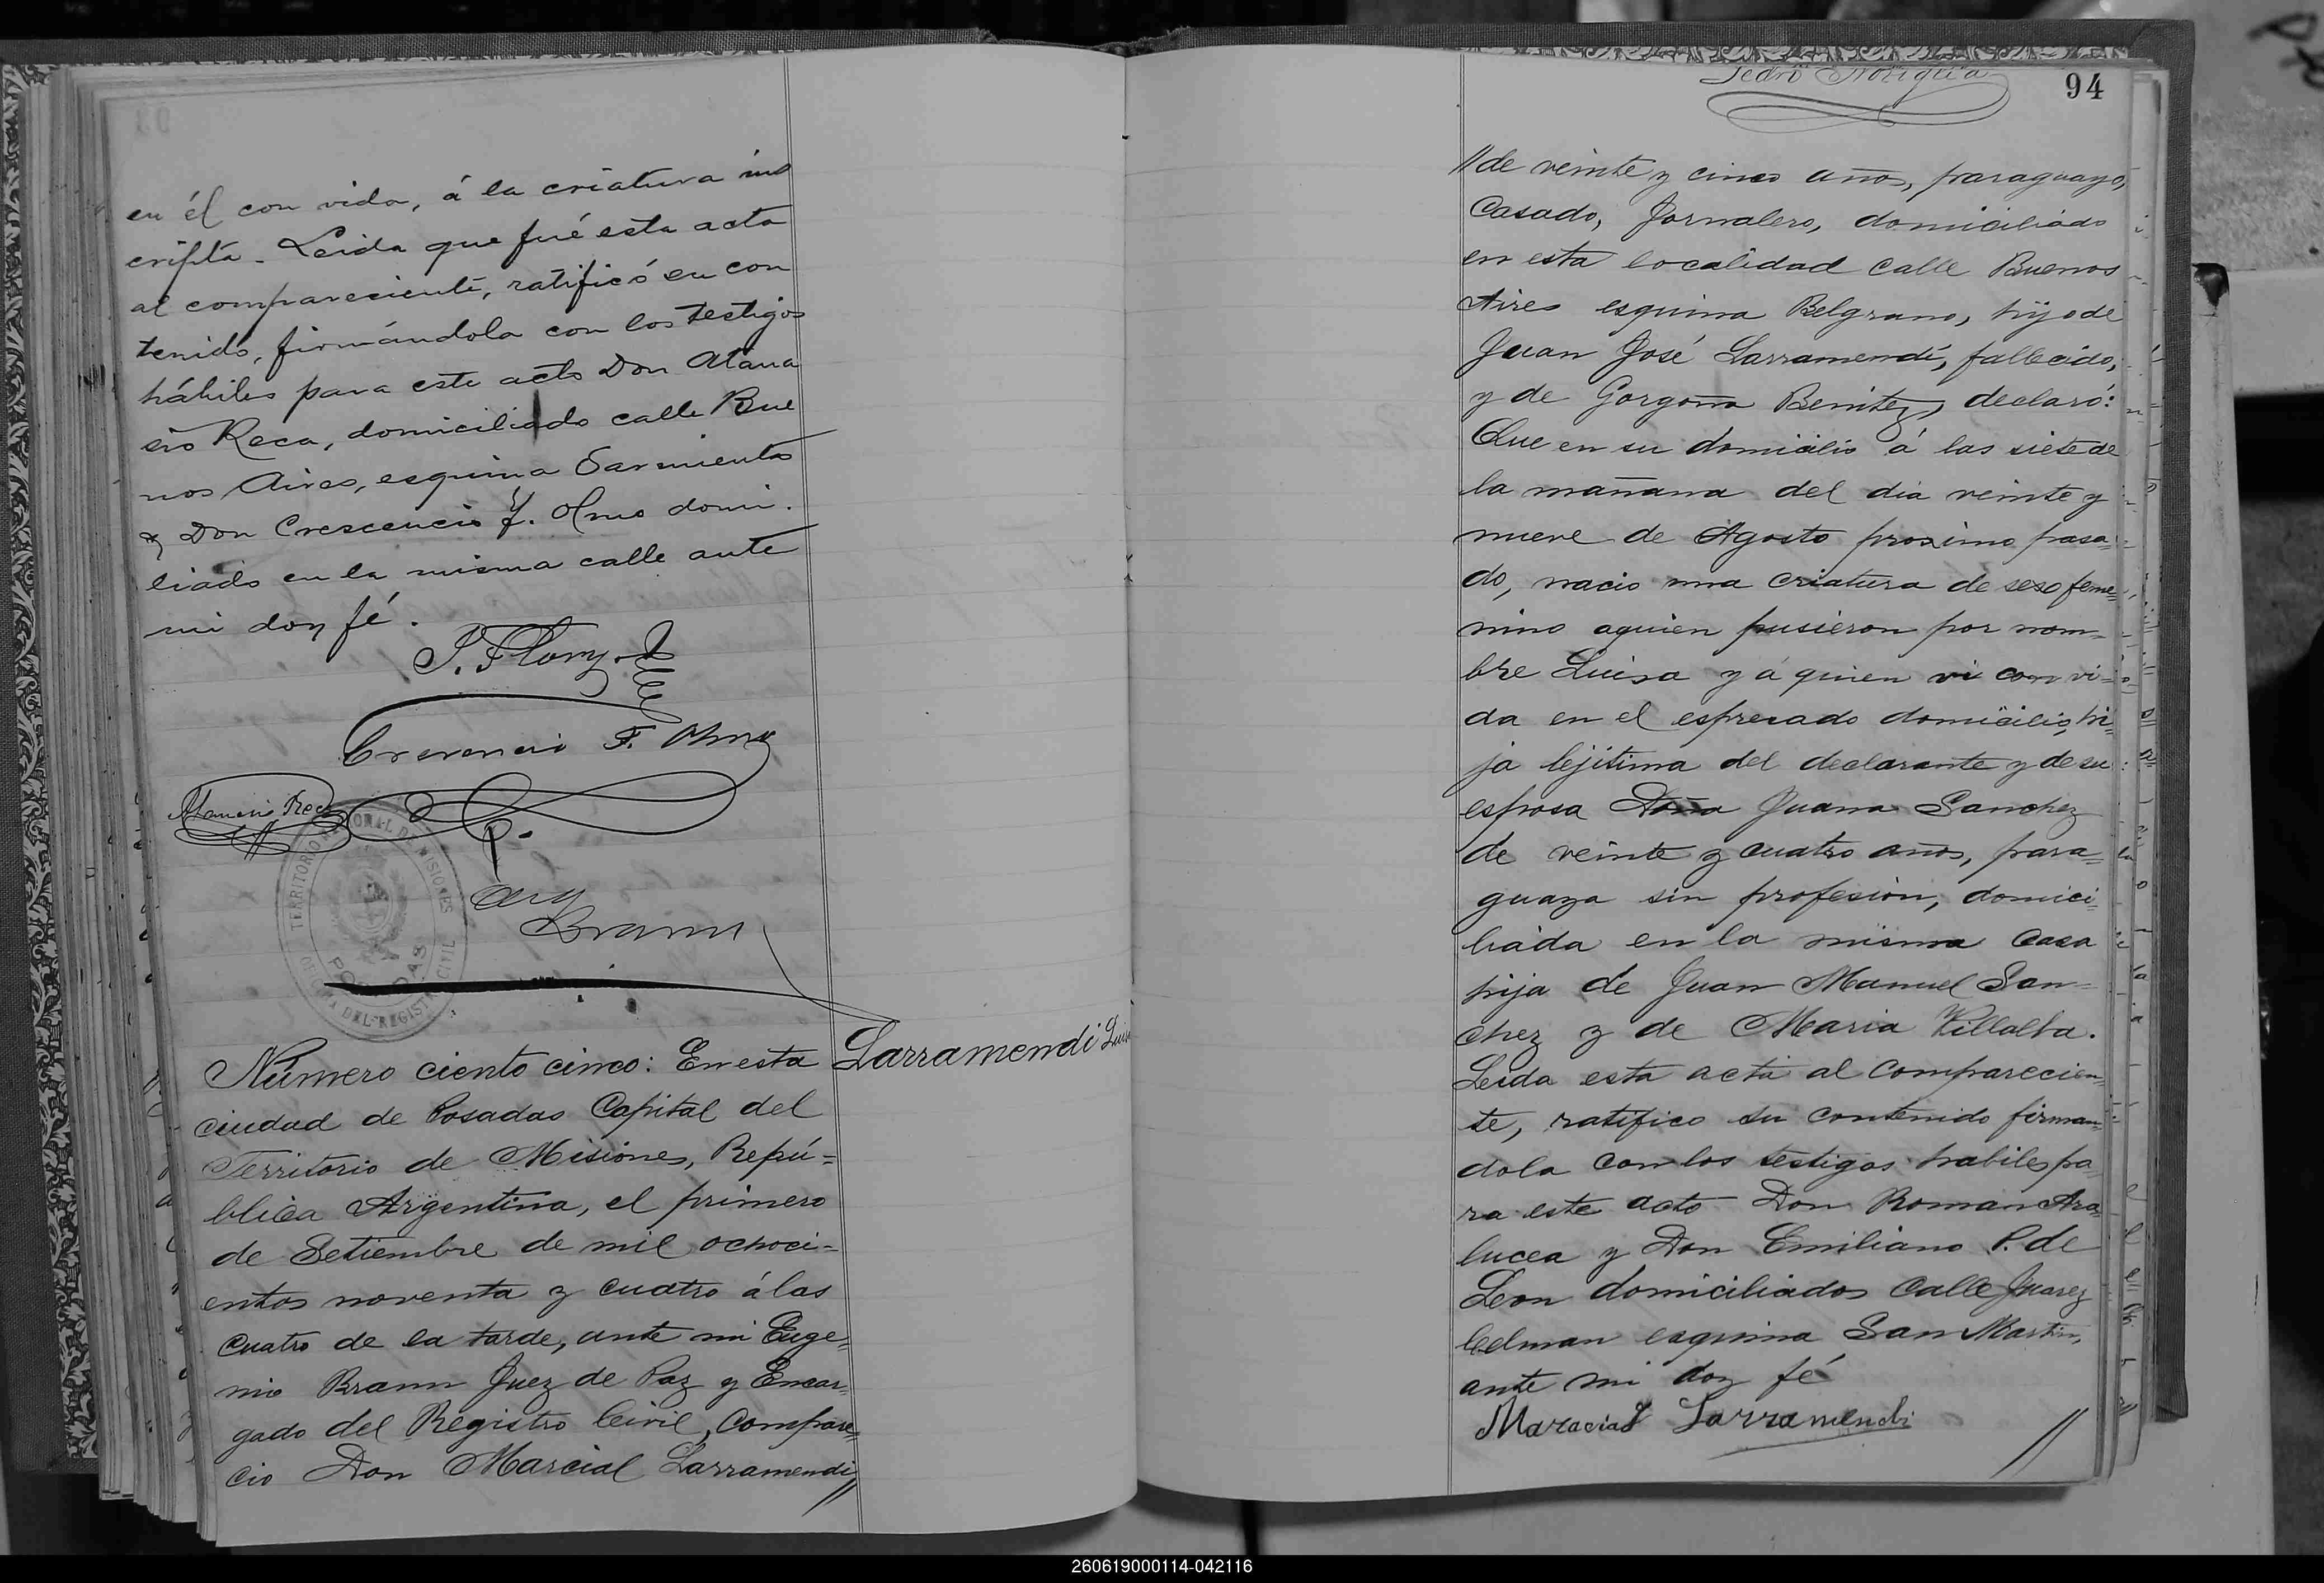 en él con vida, á la criatura ins
cripta. Leida que fué esta acta
al compareciente, ratificó su con
tenido, firmándola con los testigos
hábiles para este acto Don Atana
sio Reca, domiciliado calle Bue
nos Aires, esquina Sarmiento
y Don Crescencio F. Olmo domi.
liado en la misma calle ante
mi doy fé.
Crescencio F. Olmo
TERRITORIO NACIONAL DE MISIONES
POSADAS
OFICINA DEL REGISTRO CIVIL
Eug
Bramm
Número ciento cinco: En esta
Larramendi Luisa
ciudad de Posadas Capital del
Territorio de Misiones, Repú=
blica Argentina, el primero
de Setiembre de mil ochoci=
entos noventa y cuatro á las
cuatro de la tarde, ante mi Euge=
nio Bramm Juez de Paz y Encar=
gado del Registro Civil, compare=
cio Don Marcial Larramendi,
//
Pedro Noriqua
94
//de veinte y cinco años, paraguayo,
Casado, Jornalero, domiciliado
en esta localidad calle Buenos
Aires esquina Belgrano, hijo de
Juan José Larramendi, fallecido,
y de Gorgoña Benitez, declaró:
Que en su domicilio á las siete de
la mañana del dia veinte y
nueve de Agosto proximo pasa=
do, nacio una criatura de sexo feme=
nino aquien pusieron por nom=
bre Luisa y á quien vi con vi=
da en el espresado domicilio, hi=
ja lejitima del declarante y de su
esposa Doña Juana Sanchez
de veinte y cuatro años, para=
guaya sin profesion, domici=
liada en la misma casa
hija de Juan Manuel San=
chez y de Maria Villalba.
Leida esta acta al comparecien=
te, ratifico su contenido firman=
dola con los testigos habiles pa
ra este acto Don Roman Ara=
lucea y Don Emiliano P. de
Leon domiciliados calle Juarez
Celman esquina San Martin,
ante mi doy fé
Maracial Larramendi
//
260619000114-042116